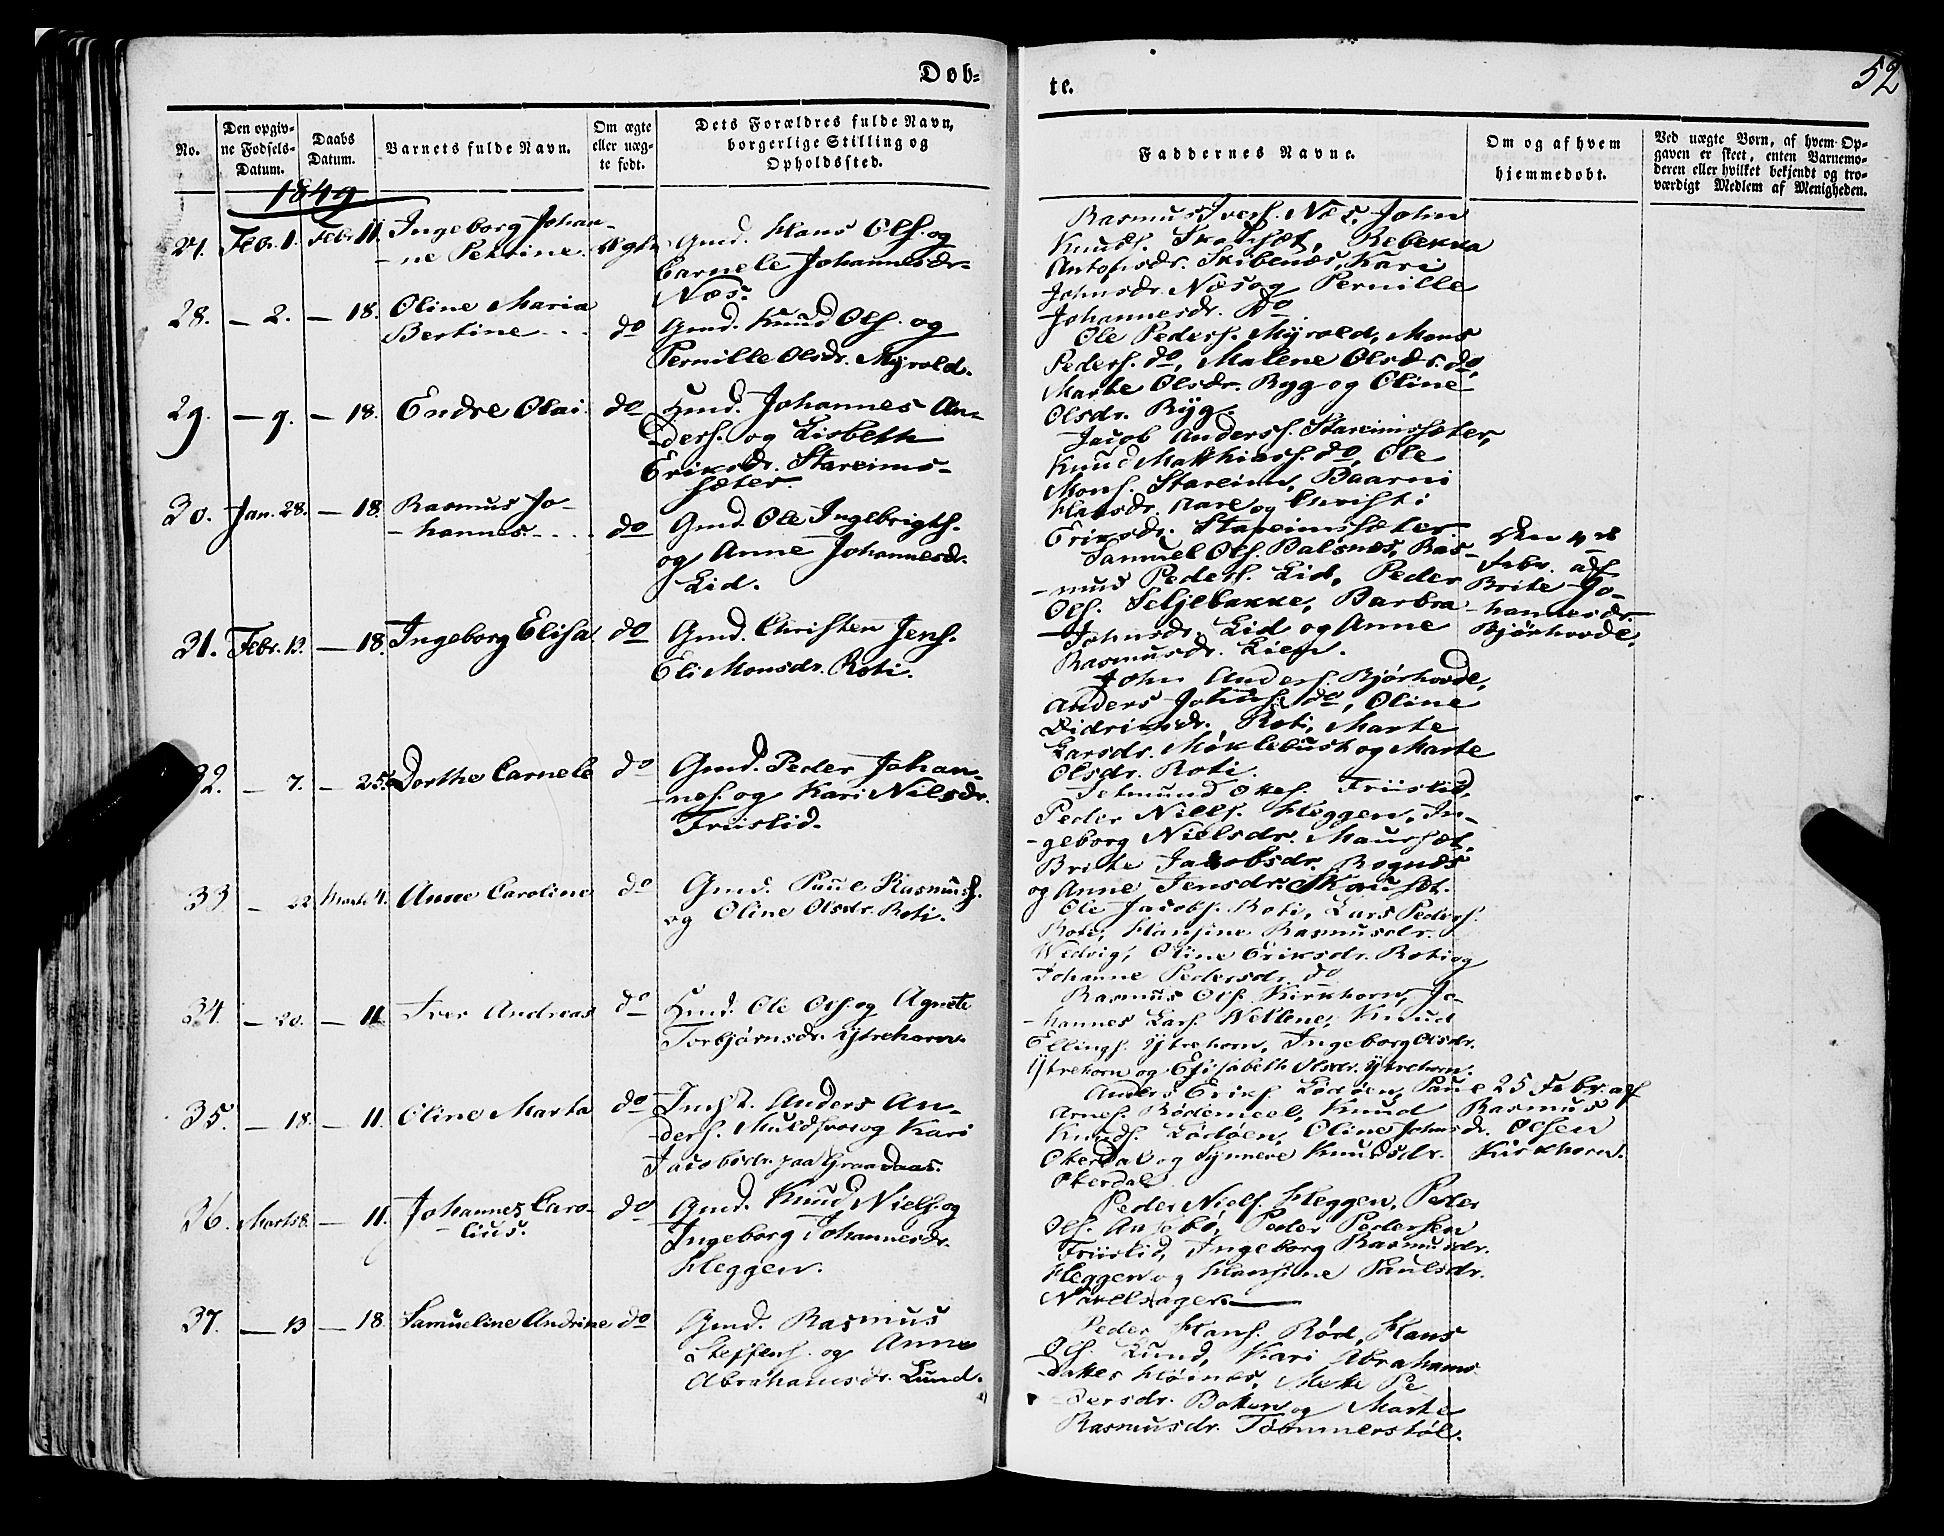 Døb-
te.
52
No.
Den opgiv-
ne Fødsels-
Datum.
Daabs
Datum.
Barnets fulde Navn.
Om ægte
eller uæg-
te født.
Dets Forældres fulde Navn,
borgerlige Stilling og
Opholdssted.
Faddernes Navne.
Om og af hvem
hjemmedøbt.
Ved uægte Børn, af hvem Op-
gaven er skeet, enten Barnemo-
deren eller hvilket bekjendt og tro-
værdigt Medlem af Menigheden.
1849
27. Febr. 1. Febr. 11. Ingeborg Johan-
-ne Petrine. ægte
Gmd. Hans Ols. og
Carnele Johannesdr.
Næs.
Rasmus Ivers. Næs, John
Knuds. Rebekka
Antonsdr. Skibenæs, Kari
Johnsdr. Næs og Pernille
Johannesdr. do
28. — 2. — 18. Oline Maria
Bertine - - do
Gmd. Knud Ols. og
Pernille Olsdr. Myrold.
Ole Peders. Myrold, Mons
Peders. do, Malene Olsdr. do,
Marte Olsdr. Ryg og Oline
Olsdr. Ryg.
29. — 9. — 18. Endre Olai. do
Hmd. Johannes An-
ders. og Lisbeth
Eriksdr. Stareims-
sæter.
Jacob Anders. Stareimssæter,
Knud Matthias. do, Ole
Mons. Stareim, Baarni
Hansdr. Aare og Christi
Eriksdr. Stareimssæter
30. Jan. 28. — 18. Rasmus Jo-
-hannes. - - do
Gmd. Ole Ingebrigts.
og Anne Johannesdr.
Lid.
Samuel Ols. Balsnæs, Ras-
-mus Peders. Lid, Peder
Ols. Seljebakke, Barbra
Johnsdr. Lid og Anne
Rasmusdr. Lien.
Den 4de
Febr. af
Brite Jo-
-hannesdr.
Bjørhovde,
31. Febr. 13. — 18. Ingeborg Elisa. do
Gmd. Christen Jens.
Eli Monsdr. Roti.
John Anders. Bjørhovde,
Anders Johns. do, Oline
Didriksdr. Roti, Marte
Larsdr. Møklebust og Marte
Olsdr. Roti.
32. — 7. — 25. Dorthe Carnele do
Gmd. Peder Johan-
-nes. og Kari Nilsdr.
Friislid.
Setmund Friislid,
Peder Niels. Heggen, In-
-geborg Nielsdr. Maursæt,
Brite Jacobsdr. Bognæs
og Anne Jensdr. Skousæt.
33 — 22 Marts 4. Anne Caroline do
Gmd. Paul Rasmuss.
og Oline Olsdr. Roti.
Ole Jacobs. Roti, Lars Peders.
Roti, Hansine Rasmusdr.
Wedvig, Oline Eriksdr. Roti og
Johanne Pedersdr. do
34. — 20. — 11. Iver Andreas do
Hmd. Ole Ols. og Agnete
Torbjørnsdr. Ytrehorn.
Rasmus Ols. Kirkhorn, Jo-
-hannes Lars. Knud
Ellings. Ytrehorn, Ingeborg Olsdr.
Ytrehorn og Elisabeth Olsdr. Ytrehorn.
35. — 18. — 11. Oline Marta do
Indst. Anders An-
-ders. og Kari
Jacobsdr. paa Graadaas.
Anders Eriks. Lødøen, Paul
Arnes. Rødemeel, Knud
Knuds. Lødøen, Oline Johnsdr.
Okerdal og Synneve Knudsdr.
Okerdal.
25 Febr. af
Rasmus
Olsen
Kirkhorn.
36. Marts 8. — 11. Johannes Caro-
lius. do
Gmd. Knud Niels. og
Ingeborg Johannesdr.
Heggen.
Peder Niels. Heggen, Peder
Ols. Aasebø, Peder Pedersen
Friislid, Ingeborg Rasmusdr.
Heggen og Hansine Paulsdr.
37. — 13 — 18. Samueline Andrine do
Gmd. Rasmus
Steffens. og Anne
Abrahamsdr. Lund.
Peder Hans. Rød, Hans
Ols. Lund, Kari Abrahams-
datter Høines, Mette Pe-
-dersdr. Botten og Marte
Rasmusdr. Tømmerstøl.